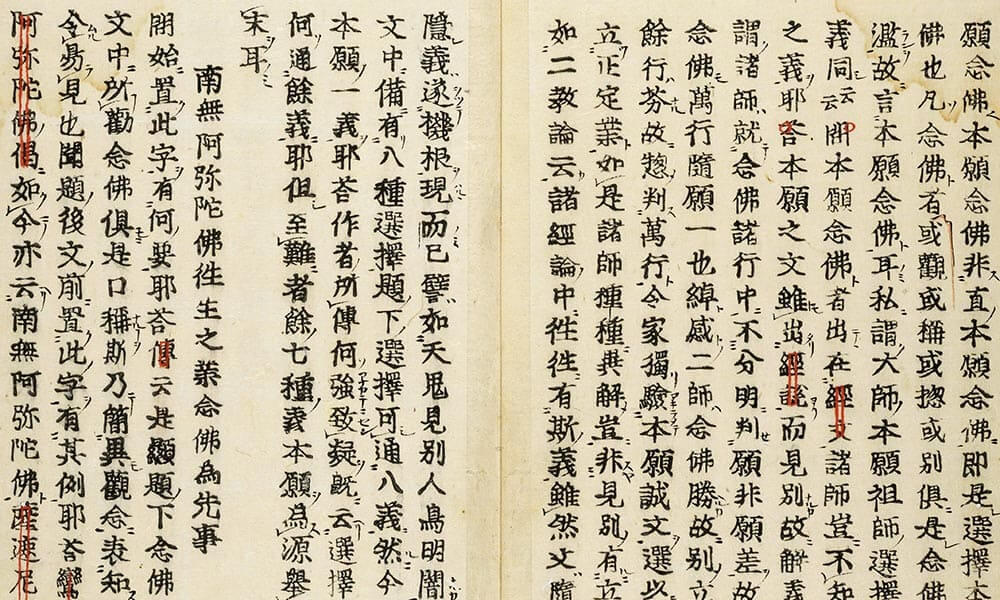 願念佛本願念佛非直本願念佛即是選擇本
佛也凡念佛者或觀或稱或惣或別俱是念佛
濫故言本願念佛耳私謂大師本願祖師選擇
義同云云問本願念佛者出在經文諸師豈不知
之義耶答本願之文雖出經說而見別故解義
謂諸師就念佛諸行中不分明判願非願差故
念佛萬行隨願一也綽感二師念佛勝故別立
餘行芬故惣判萬行今家獨驗本願誠文選以
立正定業如是諸師種種異解豈非見別有立
如二教論云諸經論中往往有斯義雖然文隨
隱義逐機根現而已譬如天鬼見別人鳥明闇
文中備有八種選擇題下選擇可通八義然今
本願一義耶答作者所傳何強致疑既云選擇
何通餘義耶但至難者餘七種義本願為源舉
末耳
南無阿弥陀佛往生之業念佛為先事
問始置此字有何要耶答傳云是顯題下念佛
文中所勸念佛俱是口稱斯乃簡異觀念表知
令易見也聞題後文前置此字有其例耶答鸞
阿弥陀佛偈如今亦云南無阿弥陀佛